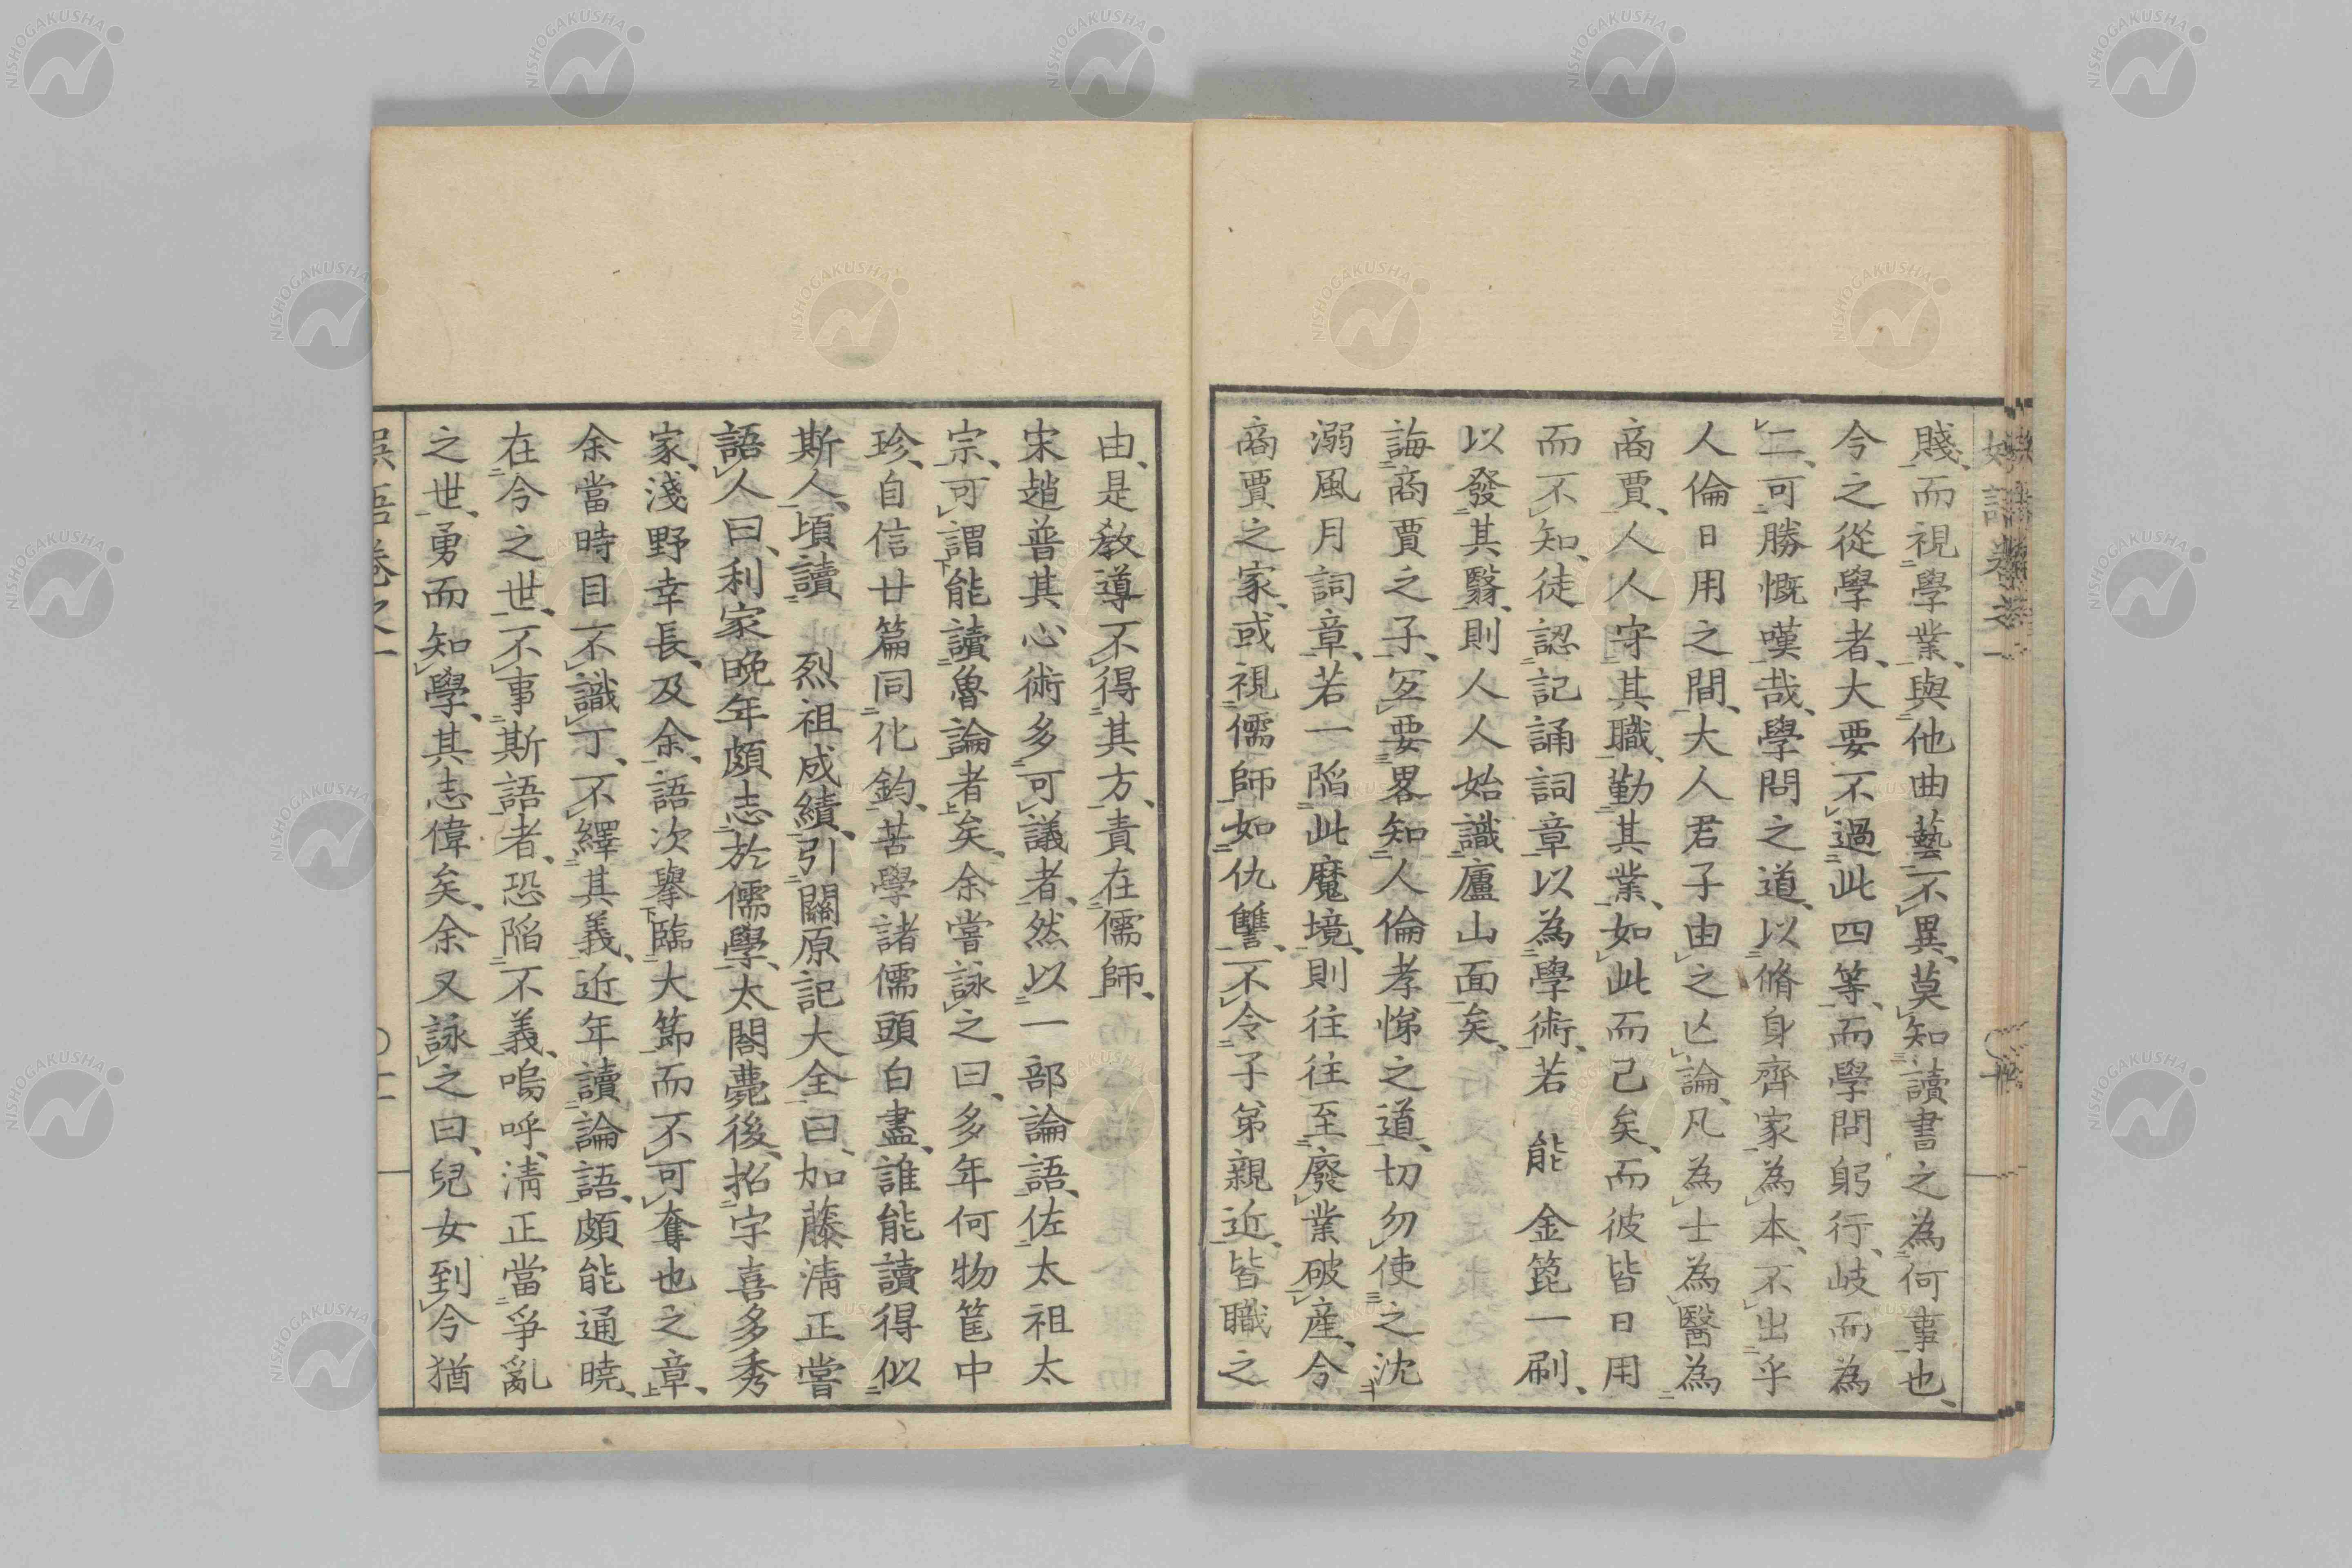 賤、而視學業、與他曲藝不異、莫知讀書之為何事也、
今之從學者、大要不過此四等、而學問躬行、岐而為
二、可勝慨嘆哉、學問之道、以脩身齊家為本、不出乎
人倫日用之間、大人君子由之亡論、凡為士為醫為
商賈、人人守其職、勤其業、如此而己矣、而彼皆日用
而不知、徒認記誦詞章以為學術、若能金篦一刷、
以發其翳、則人人始識廬山面矣、
誨商賈之子、㝡要畧知人倫孝悌之道、切勿使之沈
溺風月詞章、若一陷此魔境、則往往至廢業破産、今
商賈之家、或視儒師如仇讐、不令子弟親近、皆職之
由、是教導不得其方、責在儒師、
宋趙普其心術多可議者、然以一部論語、佐太祖太
宗、可謂能讀魯論者矣、余嘗詠之曰、多年何物篋中
珍、自信廿篇同化鈞、苦學諸儒頭白盡、誰能讀得似
斯人、頃讀烈祖成績、引關原記大全曰、加藤淸正嘗
語人曰、利家晩年頗志於儒學、太閤薨後、招宇喜多秀
家、淺野幸長、及余、語次擧臨大節而不可奪也之章、
余當時目不識丁、不繹其義、近年讀論語、頗能通曉、
在今之世、不事斯語者、恐陷不義、嗚呼、淸正當爭亂
之世、勇而知學、其志偉矣、余又詠之曰、兒女到今猶
娛語卷之一